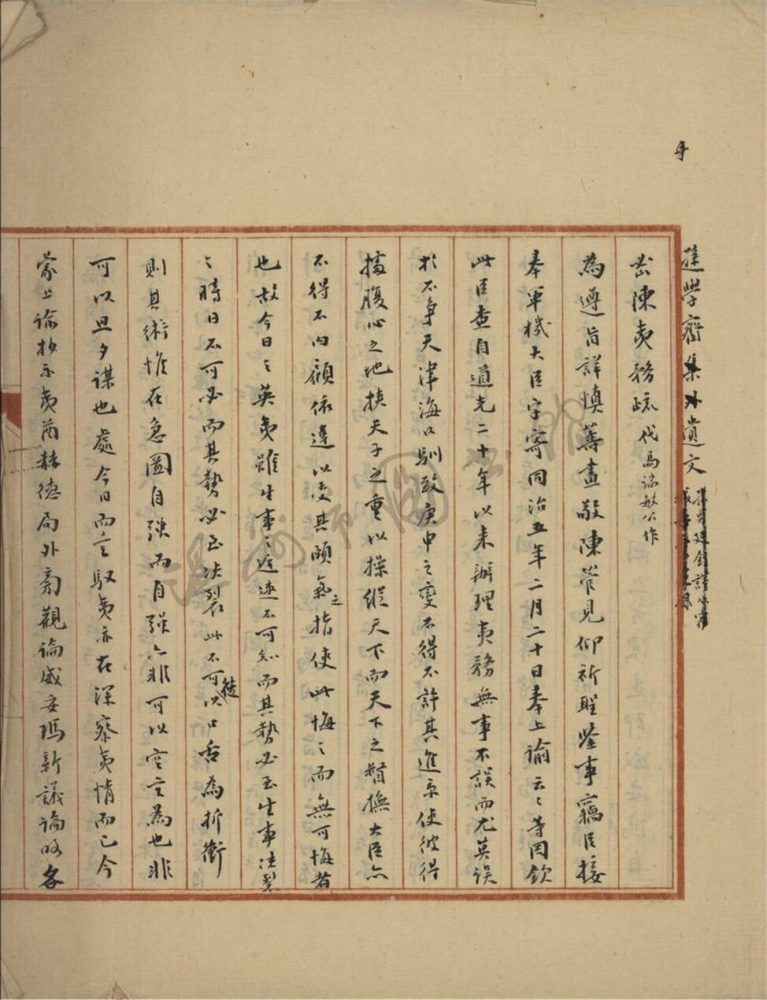 手
進學齋集外遺文
密陳夷務疏 代馬端敏公作
為遵旨詳慎籌畫敬陳管見仰祈聖鑒事竊臣接
奉軍機大臣字寄同治五年二月二十日奉上諭云々等因欽
此臣查自道光二十年以來辦理夷務無事不誤而尤莫誤
於不爭天津海口馴致庚申之變不得不許其進京使彼得
據腹心之地挾天子之重以操縱天下而天下之督撫大臣亦
不得不內顧依違以受其頤氣之指使此悔之而無可悔者
也故今日之英夷雖生事之遲速不可知而其勢必至生事決裂
之時日不可必而其勢必至決裂此不可徒以口舌為折衝
則其術惟在急圖自強而自強亦非可以空言為也非
可以旦夕謀也處今日而言馭夷亦在深察夷情而已今
蒙上諭抄示夷酋赫德局外旁觀論威妥瑪新議論略各
溫州市圖書館